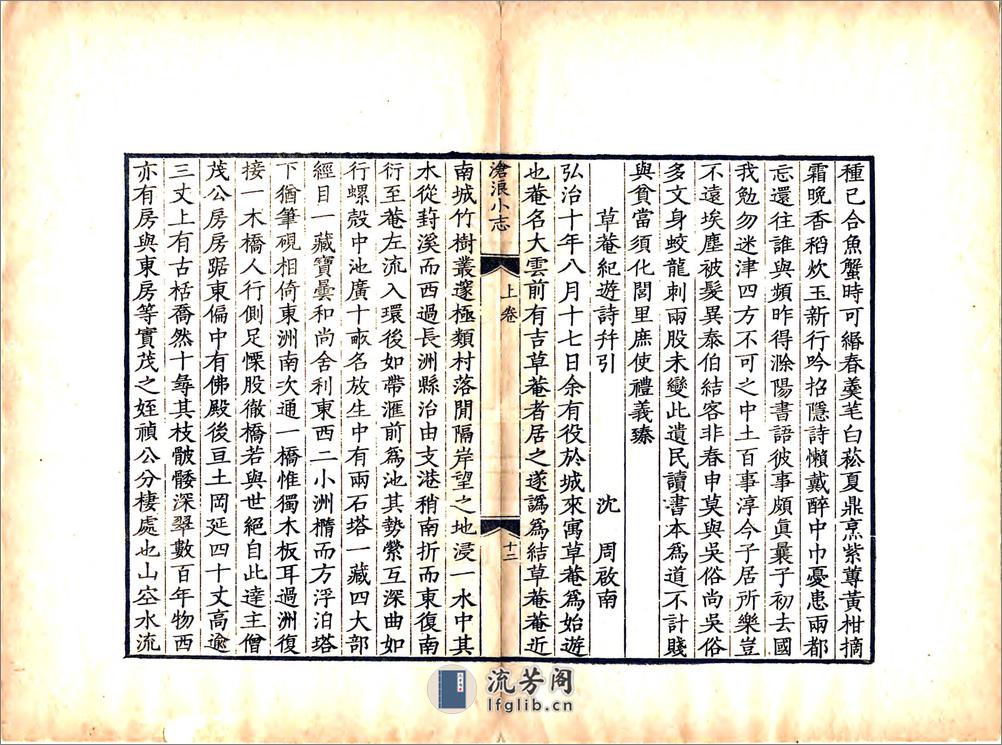 種已合魚蟹時可緡春羹芼白菘夏鼎烹紫蓴黃柑摘
霜晚香稻炊玉新行吟招隱詩懶戴醉中巾憂患兩都
忘還往誰與頻昨得滁陽書語彼事頗眞曩子初去國
我勉勿迷津四方不可之中土百事淳今子居所樂豈
不遠埃塵被髮異泰伯結客非春申莫與吳俗尚吳俗
多文身蛟龍刺兩股未變此遺民讀書本爲道不計賤
與貧當須化閭里庶使禮義臻
草菴紀遊詩幷引
沈 周啟南
弘治十年八月十七日余有役於城來寓草菴爲始遊
也菴名大雲前有吉草菴者居之遂譌爲結草菴菴近
滄浪小志 上卷 十二
南城竹樹叢邃極類村落閒隔岸望之地浸一水中其
水從葑溪而西過長洲縣治由支港稍南折而東復南
衍至菴左流入環後如帶滙前爲池其勢縈互深曲如
行螺殼中池廣十畝名放生中有兩石塔一藏四大部
經目一藏寶曇和尚舍利東西二小洲橢而方浮泊塔
下猶筆硯相倚東洲南次通一橋惟獨木板耳過洲復
接一木橋人行側足慄股徹橋若與世絕自此達主僧
茂公房房踞東偏中有佛殿後亘土岡延四十丈高逾
三丈上有古栝喬然十尋其枝骳骽深翠數百年物西
亦有房與東房等實茂之姪禎公分棲處也山空水流
流芳阁
lfglib.cn